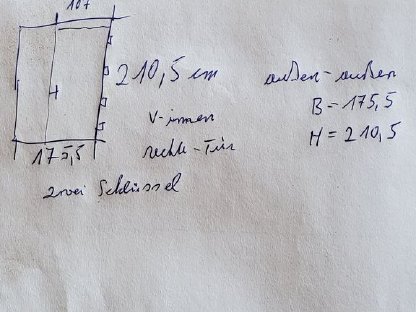 107
210,5 cm
V-innen
rechte-Tür
175,5
zwei Schlüssel
außen-außen
B = 175,5
H = 210,5